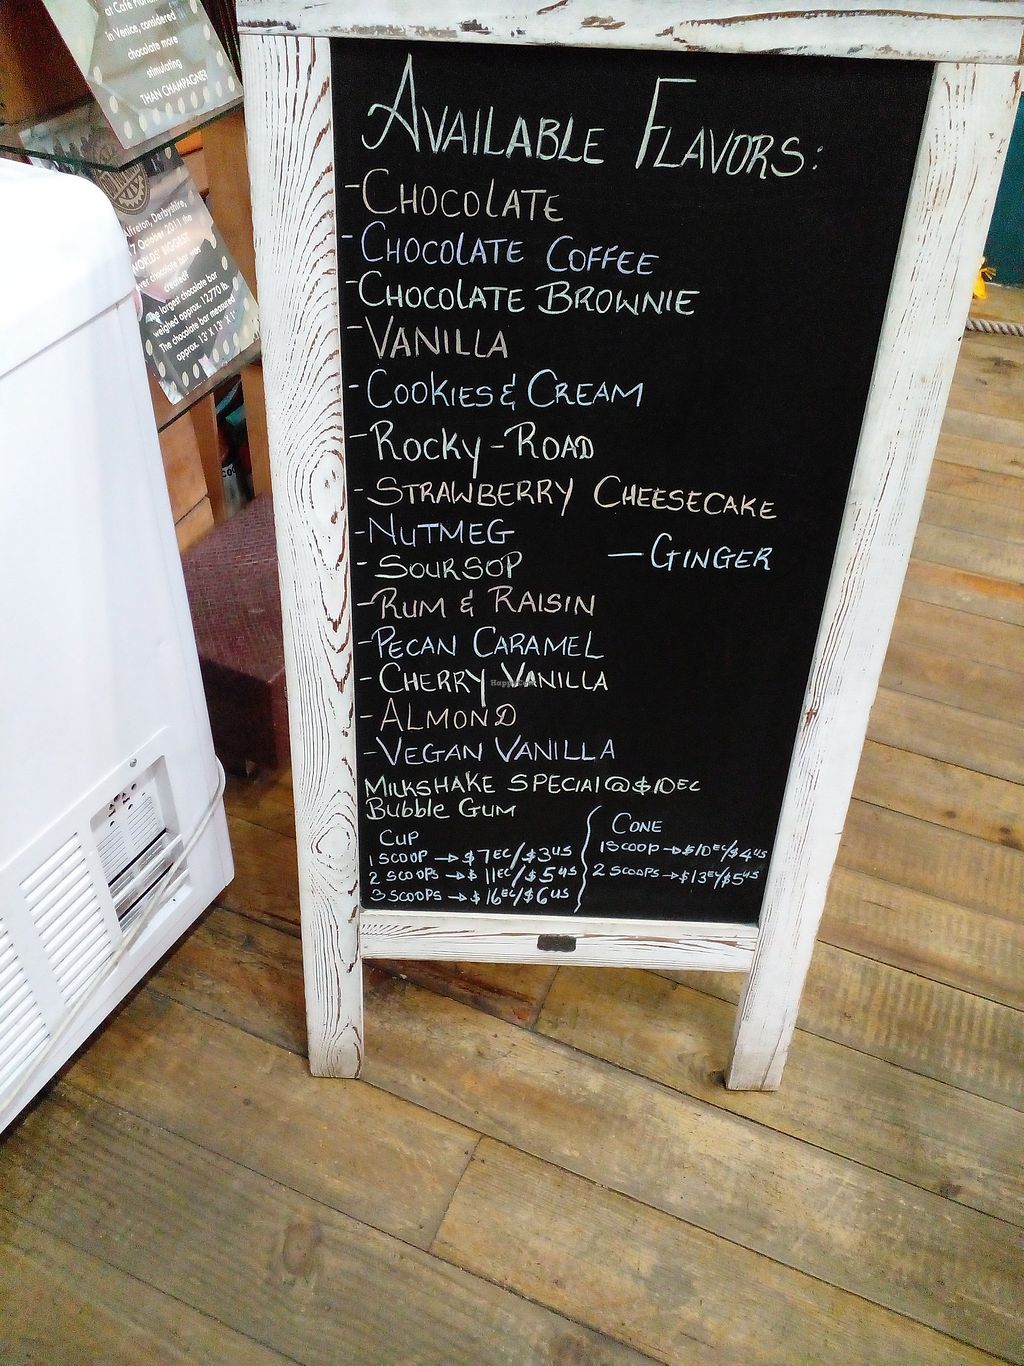 at Café Florian
in Venice, considered
chocolate more
stimulating
THAN CHAMPAGNE!
Alfreton, Derbyshire,
7 October 2011 the
WORLDS' BIGGEST
ever chocolate bar was
created!
The largest chocolate bar
weighed approx. 12,770 lb.
The chocolate bar measured
approx. 13' X 13' X 1'
AVAILABLE FLAVORS:
-CHOCOLATE
-CHOCOLATE COFFEE
-CHOCOLATE BROWNIE
-VANILLA
-COOKIES & CREAM
-ROCKY-ROAD
-STRAWBERRY CHEESECAKE
-NUTMEG
—GINGER
-SOURSOP
-RUM & RAISIN
-PECAN CARAMEL
-CHERRY VANILLA
HappyCow
-ALMOND
-VEGAN VANILLA
MILKSHAKE SPECIAL@$10EC
BUBBLE GUM
CUP
1 SCOOP → $7EC/$3US
2 SCOOPS → $11EC/$5US
3 SCOOPS → $16EC/$6US
CONE
1SCOOP → $10EC/$4US
2 SCOOPS → $13EC/$5US